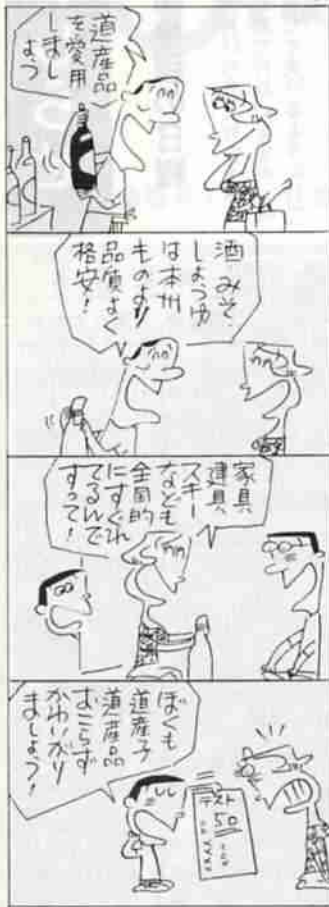 道産品
を愛用
しまし
ょう
酒、みそ、
しょうゆ
は本州
ものより
品質よく
格安!
家具
建具
スキー
なども
全国的
にすぐれ
てるんで
すって!
ぼくも
道産子
道産品
おこらず
かわいがり
ましょう!
テスト
50